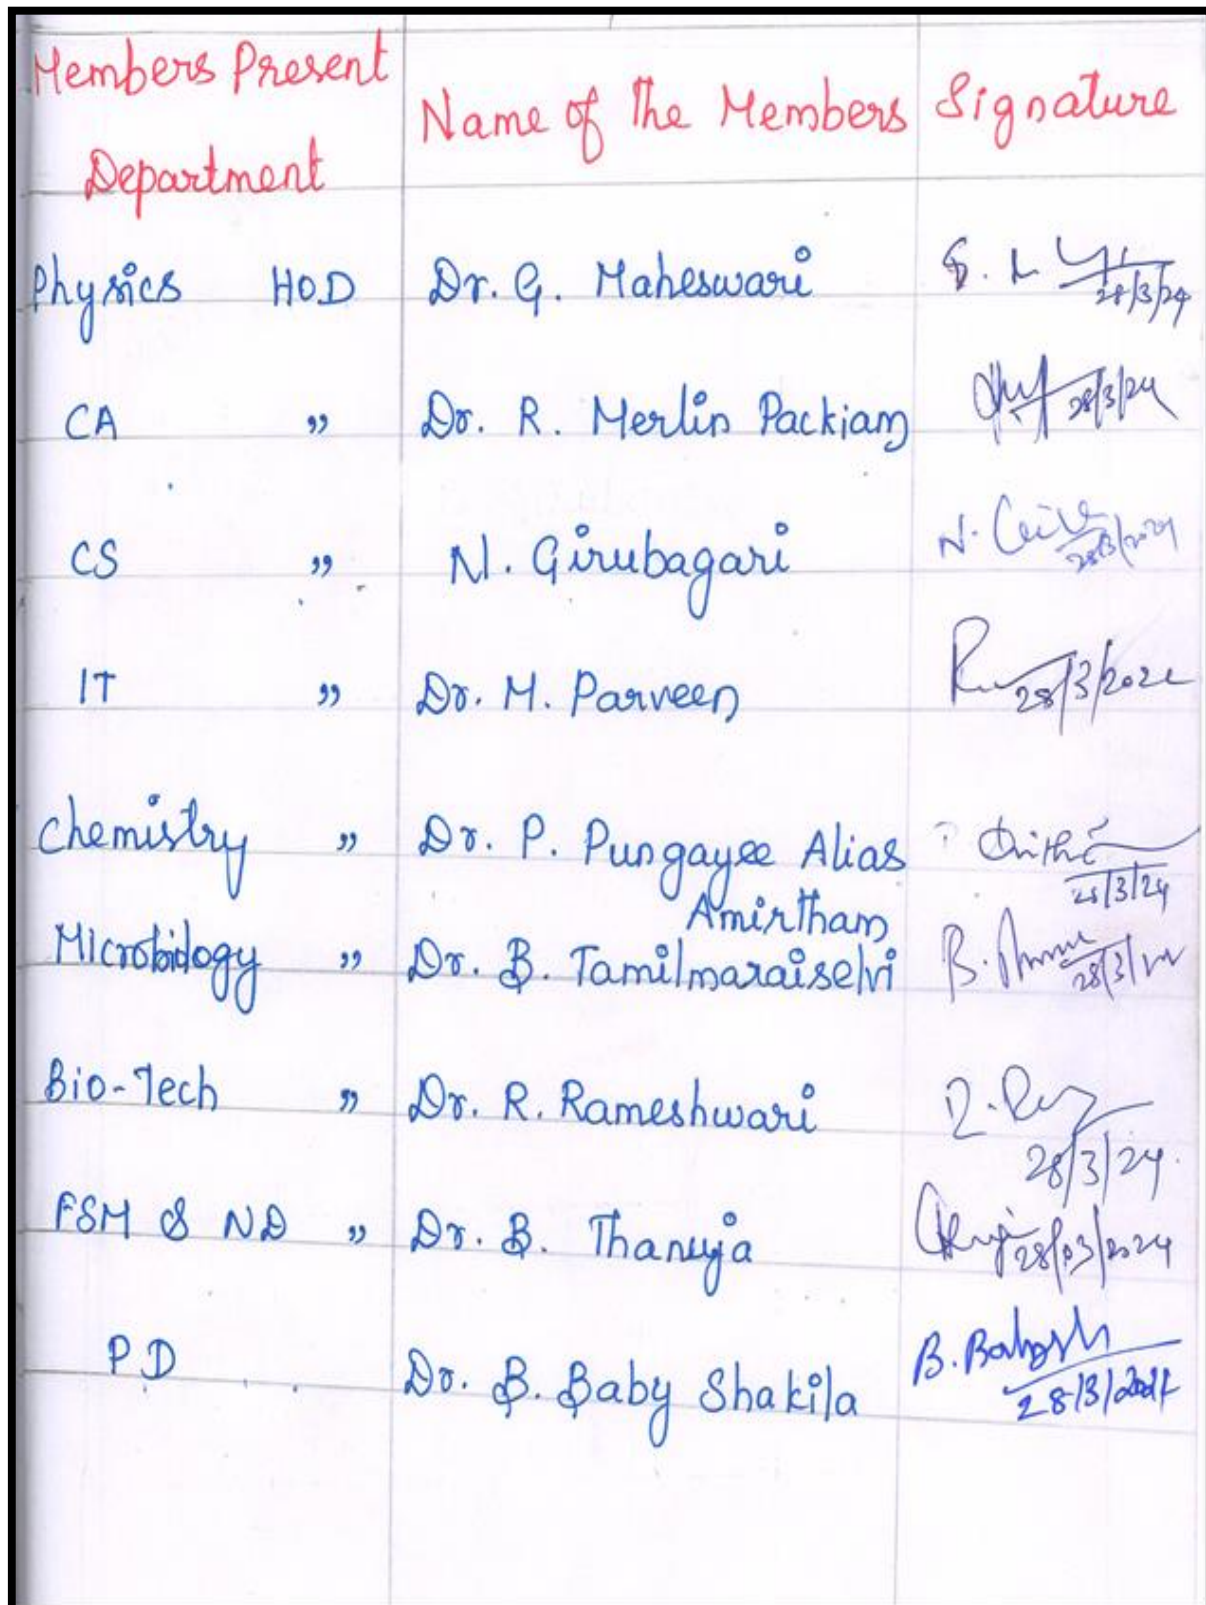 Members Present
Department
Name of the Members
Signature
Physics HOD Dr. G. Maheswari
28/3/24
CA " Dr. R. Merlin Packiam
28/3/24
CS " N. Girubagari
N. 28/3/2024
IT " Dr. M. Parveen
28/3/202
Chemistry " Dr. P. Pungayee Alias
Amirtham
28/3/24
Microbiology " Dr. B. Tamilmaraiselvi
B. 28/3/
Bio-Tech " Dr. R. Rameshwari
R.
28/3/24.
FSM & ND " Dr. B. Thanuja
28/03/2024
P D Dr. B. Baby Shakila
B.
28/3/2024